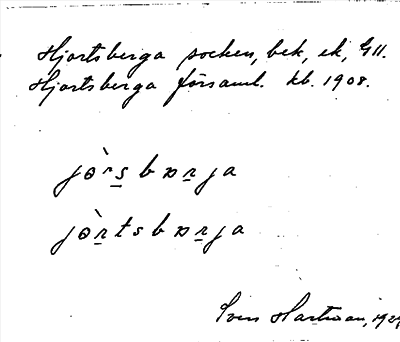 Hjortsberga socken, bek, ek, GII.
Hjortsberga församl. kb. 1908.
jɵ̀rs̲bɒr̲ja
jɵ̀r̲tsbɒr̲ja
Sven Hartman, 192